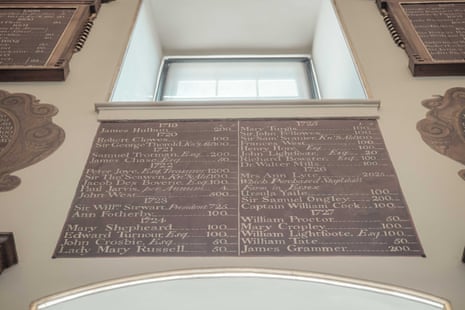 1719
James Hallam 200
1720
Robert Clowes 100
Sir George Thorold Kt & Bt 100
1721
Samuel Tratman, Esq. 200
James Chase, Esq. 50
Peter Joye, Esq. Treasurer 1200
Jacob Des Bouverie, Esq. 100
Paul Jarvis, Esq. 504
John West
1723
Sir Willm Stewart, President 725
Ann Fotherby 100
1724
Mary Shepheard 100
Edward Turnour, Esq. 100
John Crosbie, Esq. 50
Lady Mary Russell 50
1725
Mary Turgis
Sir John Fellowes
Francis West 100
Henry Hoare, Esq. 100
John Lightfoote, Esq. 20
Richard Howater, Esq. 100
Dr. Walter Mills 100
1726
Mrs Ann Lyte 2025
Which Purchased Shopland
Farm in Essex
Ursula Yale 100
Sir Samuel Ongley 200
Captain William Cork 100
1727
William Proctor 50
Mary Cropley 100
William Lightfoote, Esq. 100
William Tate 50
James Grammer 200